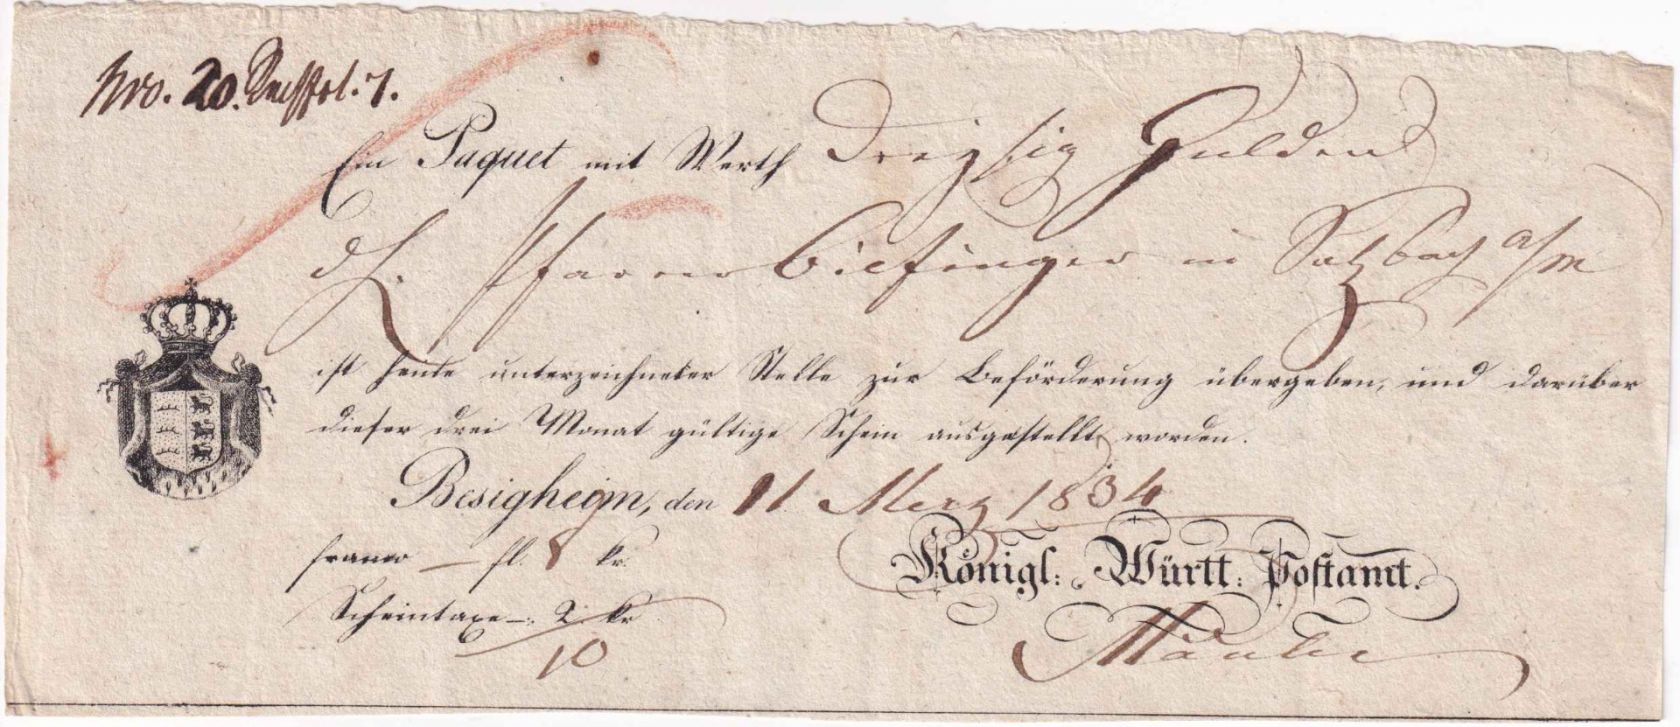 Nro. 20. 7.
Ein Paquet mit Werth Dreyßig Gulden
Pfarrer Bilfinger in Sulzbach a/m
ist heute unterzeichneter Stelle zur Beförderung übergeben, und darüber
dieser drei Monat gültige Schein ausgestellt worden.
Besigheim, den 11. Merz 1834
franco — fl. 8 kr.
Scheintaxe —: 2 kr
10
Königl: Württ: Postamt.